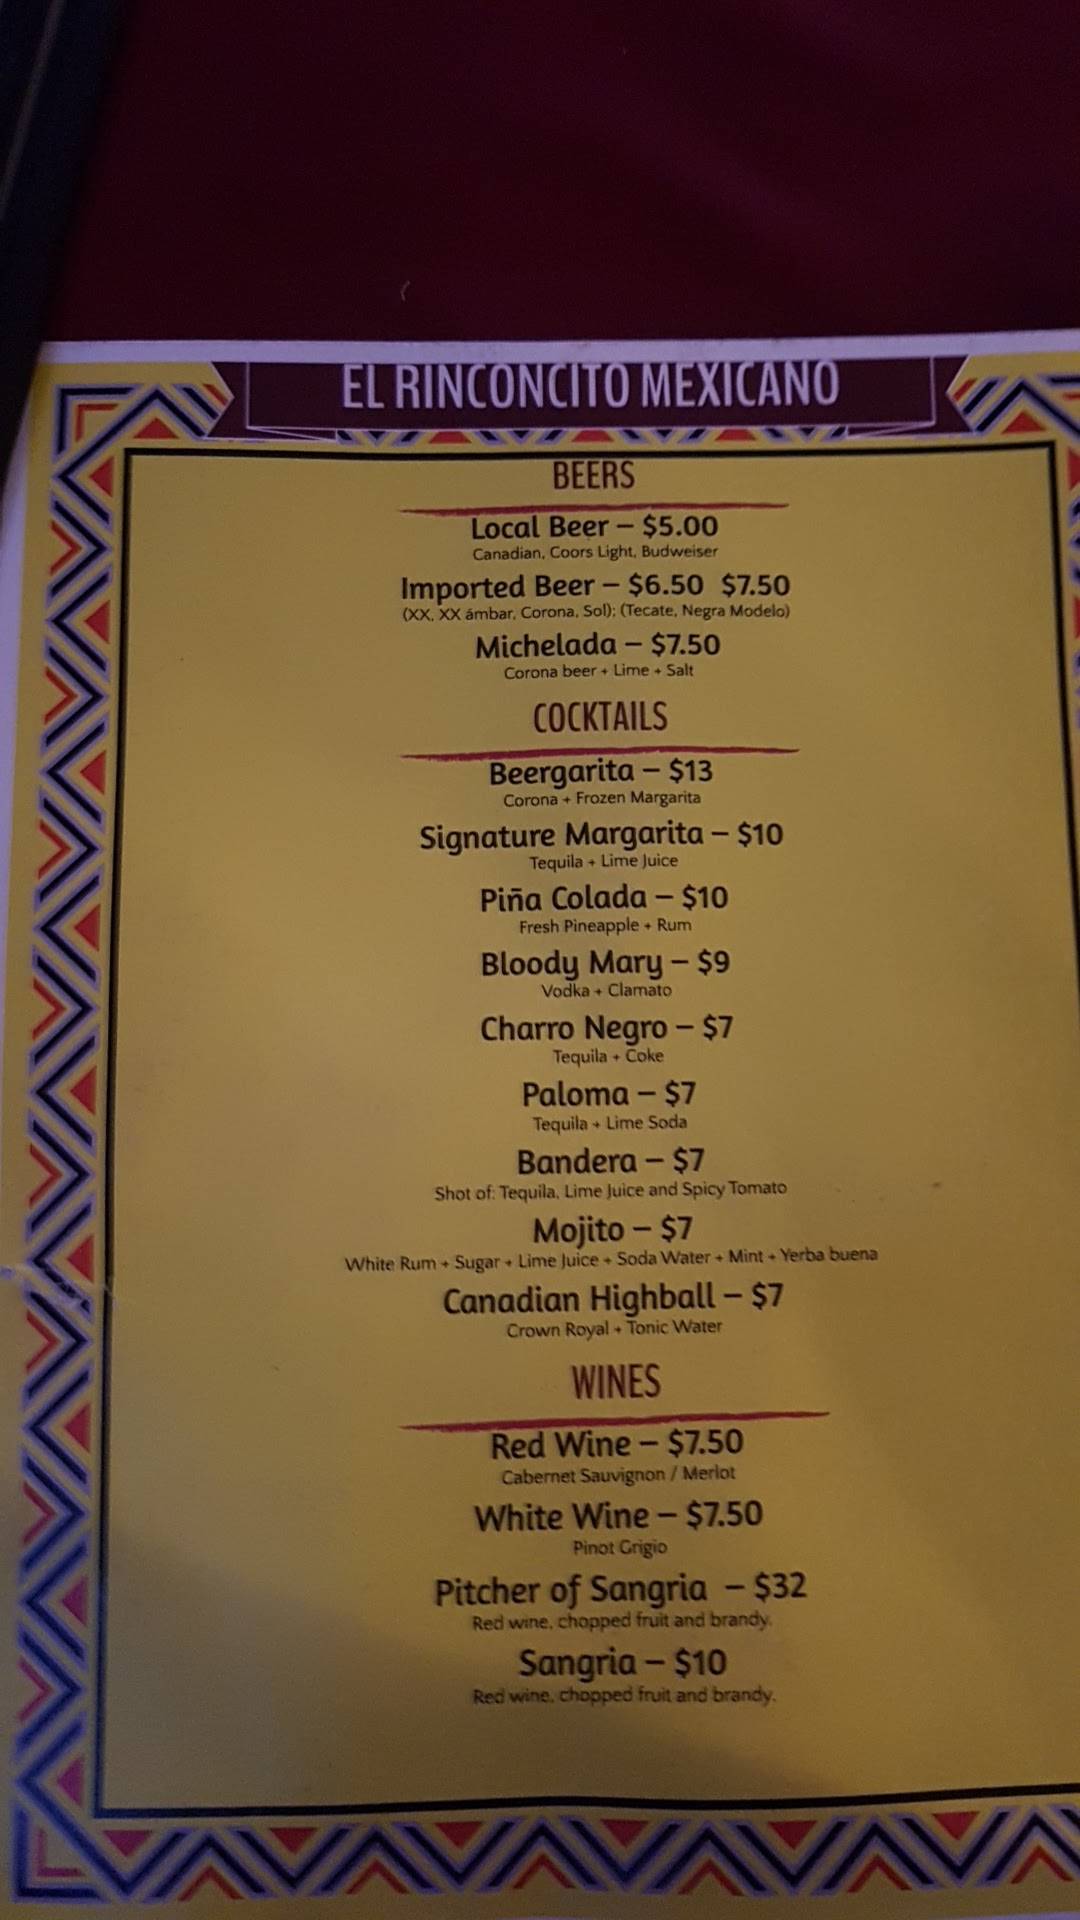 EL RINCONCITO MEXICANO
BEERS
Local Beer – $5.00
Canadian, Coors Light, Budweiser
Imported Beer – $6.50 $7.50
(XX, XX ámbar, Corona, Sol); (Tecate, Negra Modelo)
Michelada – $7.50
Corona beer + Lime + Salt
COCKTAILS
Beergarita – $13
Corona + Frozen Margarita
Signature Margarita – $10
Tequila + Lime Juice
Piña Colada – $10
Fresh Pineapple + Rum
Bloody Mary – $9
Vodka + Clamato
Charro Negro – $7
Tequila + Coke
Paloma – $7
Tequila + Lime Soda
Bandera – $7
Shot of: Tequila, Lime Juice and Spicy Tomato
Mojito – $7
White Rum + Sugar + Lime Juice + Soda Water + Mint + Yerba buena
Canadian Highball – $7
Crown Royal + Tonic Water
WINES
Red Wine – $7.50
Cabernet Sauvignon / Merlot
White Wine – $7.50
Pinot Grigio
Pitcher of Sangria – $32
Red wine, chopped fruit and brandy.
Sangria – $10
Red wine, chopped fruit and brandy.